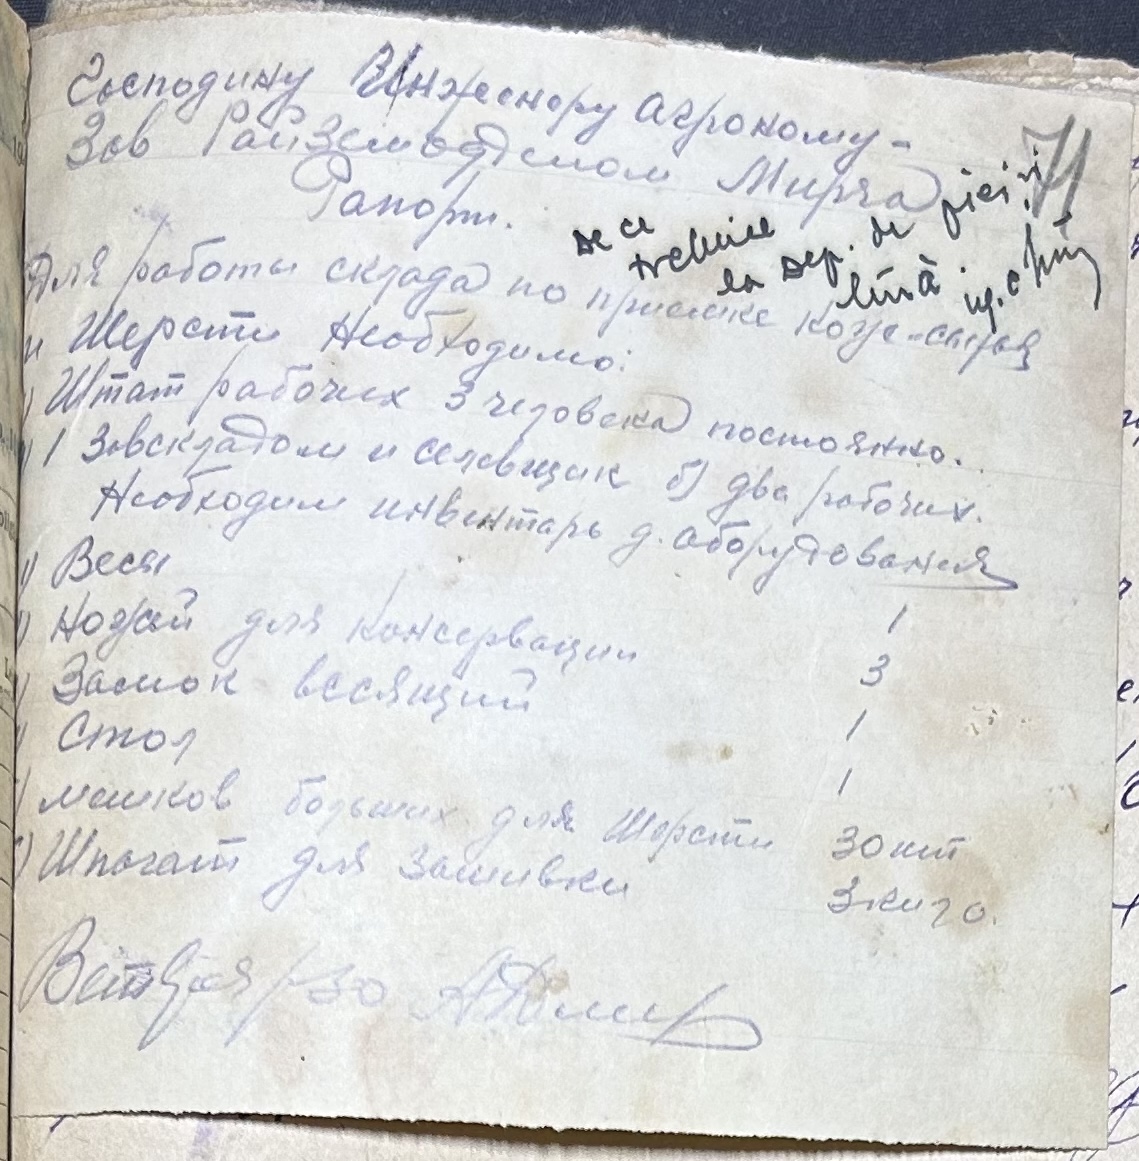 Господину Инженеру Агроному -
Зав РайЗемотделом Мирча
71
Рапорт.
de ce
trebuie
la dep. de piei și
lînă
Для работы склада по приемке коже-сырья
и Шерсти Необходимо:
Штат рабочих 3 человека постоянно.
1 Завскладом и селовщик б) два рабочих.
Необходим инвентарь д. оборудования
Весы 1
Ножей для консервации 3
Замок весящий 1
Стол 1
мешков больших для Шерсти 30 шт
Шпагат для зашивки 3 кило.